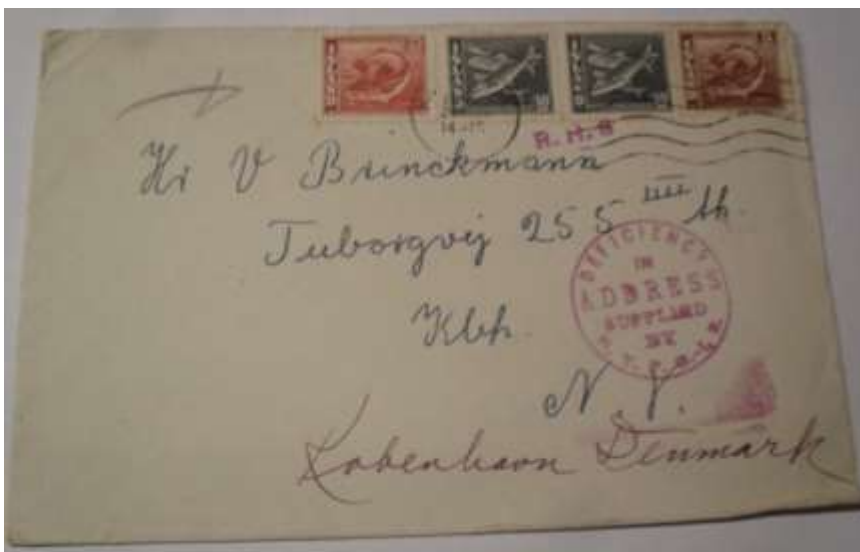 ISLAND ISLAND ISLAND ISLAND
R.M.S
Hr V Brinckmann
Tuborgvej 255 IIII th.
DEFICIENCY
IN
ADDRESS
SUPPLIED
BY
Kbh.
N. V.
København Denmark